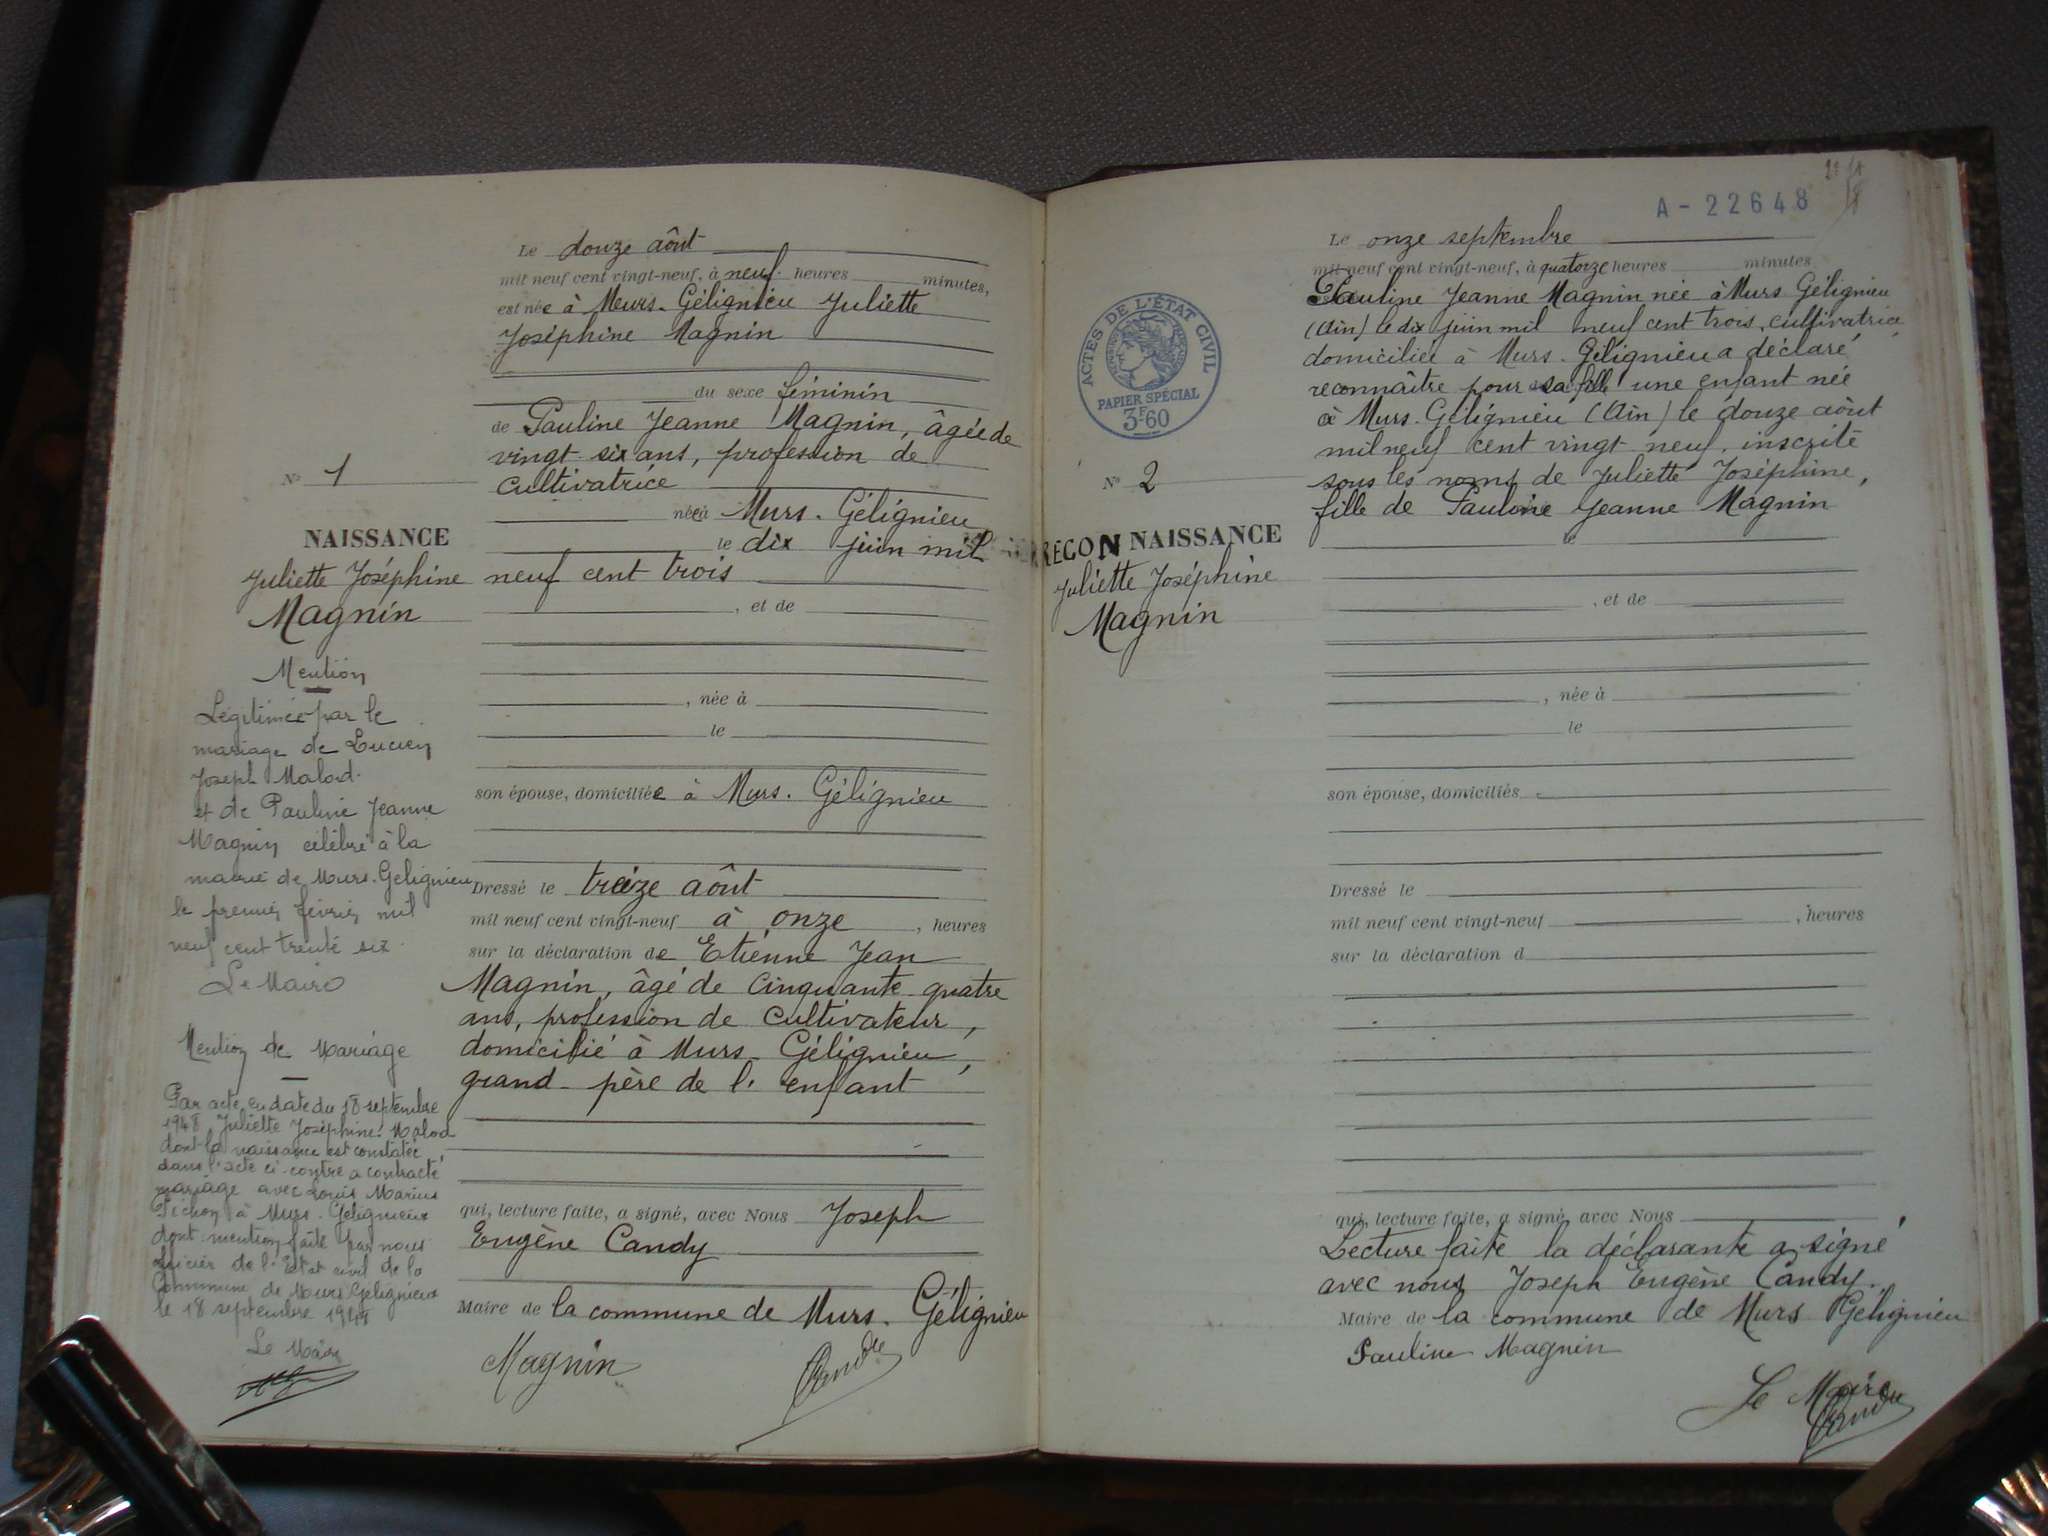 Le douze aôut
mil neuf cent vingt-neuf, à neuf heures minutes,
est née à Murs-Gélignieu Juliette
Joséphine Magnin
du sexe féminin
de Pauline Jeanne Magnin, âgée de
vingt-six ans, profession de
cultivatrice
née à Murs-Gélignieu
le dix juin mil
neuf cent trois
, et de
, née à
le
son épouse, domiciliée à Murs-Gélignieu
Dressé le treize aôut
mil neuf cent vingt-neuf à onze , heures
sur la déclaration de Etienne Jean
Magnin, âgé de cinquante-quatre
ans, profession de cultivateur,
domicilié à Murs-Gélignieu,
grand-père de l'enfant
qui, lecture faite, a signé, avec Nous Joseph
Eugène Candy
Maire de la commune de Murs-Gélignieu
Magnin
N° 1
NAISSANCE
Juliette Joséphine
Magnin
Mention
Légitimée par le
mariage de Lucien
Joseph Malod
et de Pauline Jeanne
Magnin célébré à la
mairie de Murs-Gelignieu
le premier février mil
neuf cent trente six.
Le Maire
Mention de Mariage
Par acte en date du 18 septembre
1948 Juliette Joséphine Malod
dont la naissance est constatée
dans l'acte ci-contre a contracté
mariage avec Louis Marius
Pichon à Murs-Gelignieux
dont mention faite par nous
officier de l'Etat civil de la
Commune de Murs Gelignieux
le 18 septembre 1948
Le Maire
A-22648
Le onze septembre
mil neuf cent vingt-neuf, à quatorze heures minutes
Pauline Jeanne Magnin née à Murs Gélignieu
(Ain) le dix juin mil neuf cent trois, cultivatrice
domiciliée à Murs-Gélignieu a déclaré
reconnaître pour sa fille une enfant née
à Murs-Gélignieu (Ain) le douze aôut
mil neuf cent vingt neuf, inscrite
sous les noms de Juliette Joséphine,
fille de Pauline Jeanne Magnin
le
, et de
, née à
le
son épouse, domiciliés
Dressé le
mil neuf cent vingt-neuf , heures
sur la déclaration d
qui, lecture faite, a signé, avec Nous
Lecture faite la déclarante a signé
avec nous Joseph Eugène Candy.
Maire de la commune de Murs Gélignieu
Pauline Magnin
Le Maire
ACTES DE L'ÉTAT CIVIL
PAPIER SPÉCIAL
3F60
N° 2
RECONNAISSANCE
Juliette Joséphine
Magnin